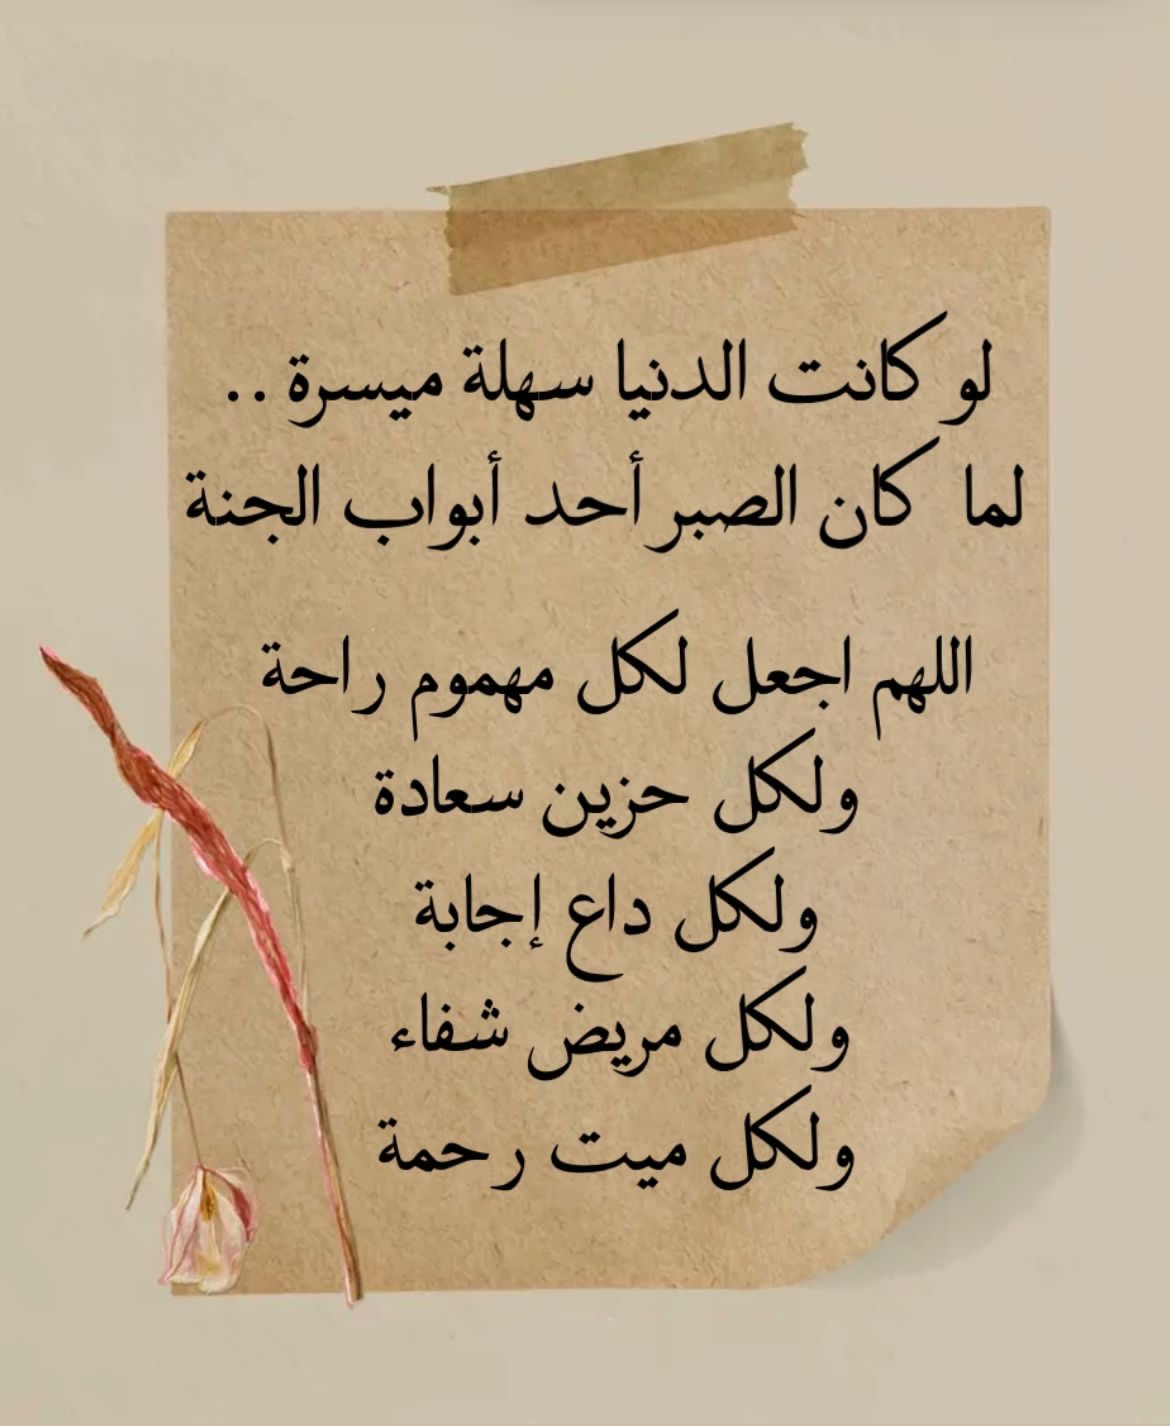 لو كانت الدنيا سهلة ميسرة ..
لما كان الصبر أحد أبواب الجنة
اللهم اجعل لكل مهموم راحة
ولكل حزين سعادة
ولكل داع إجابة
ولكل مريض شفاء
ولكل ميت رحمة